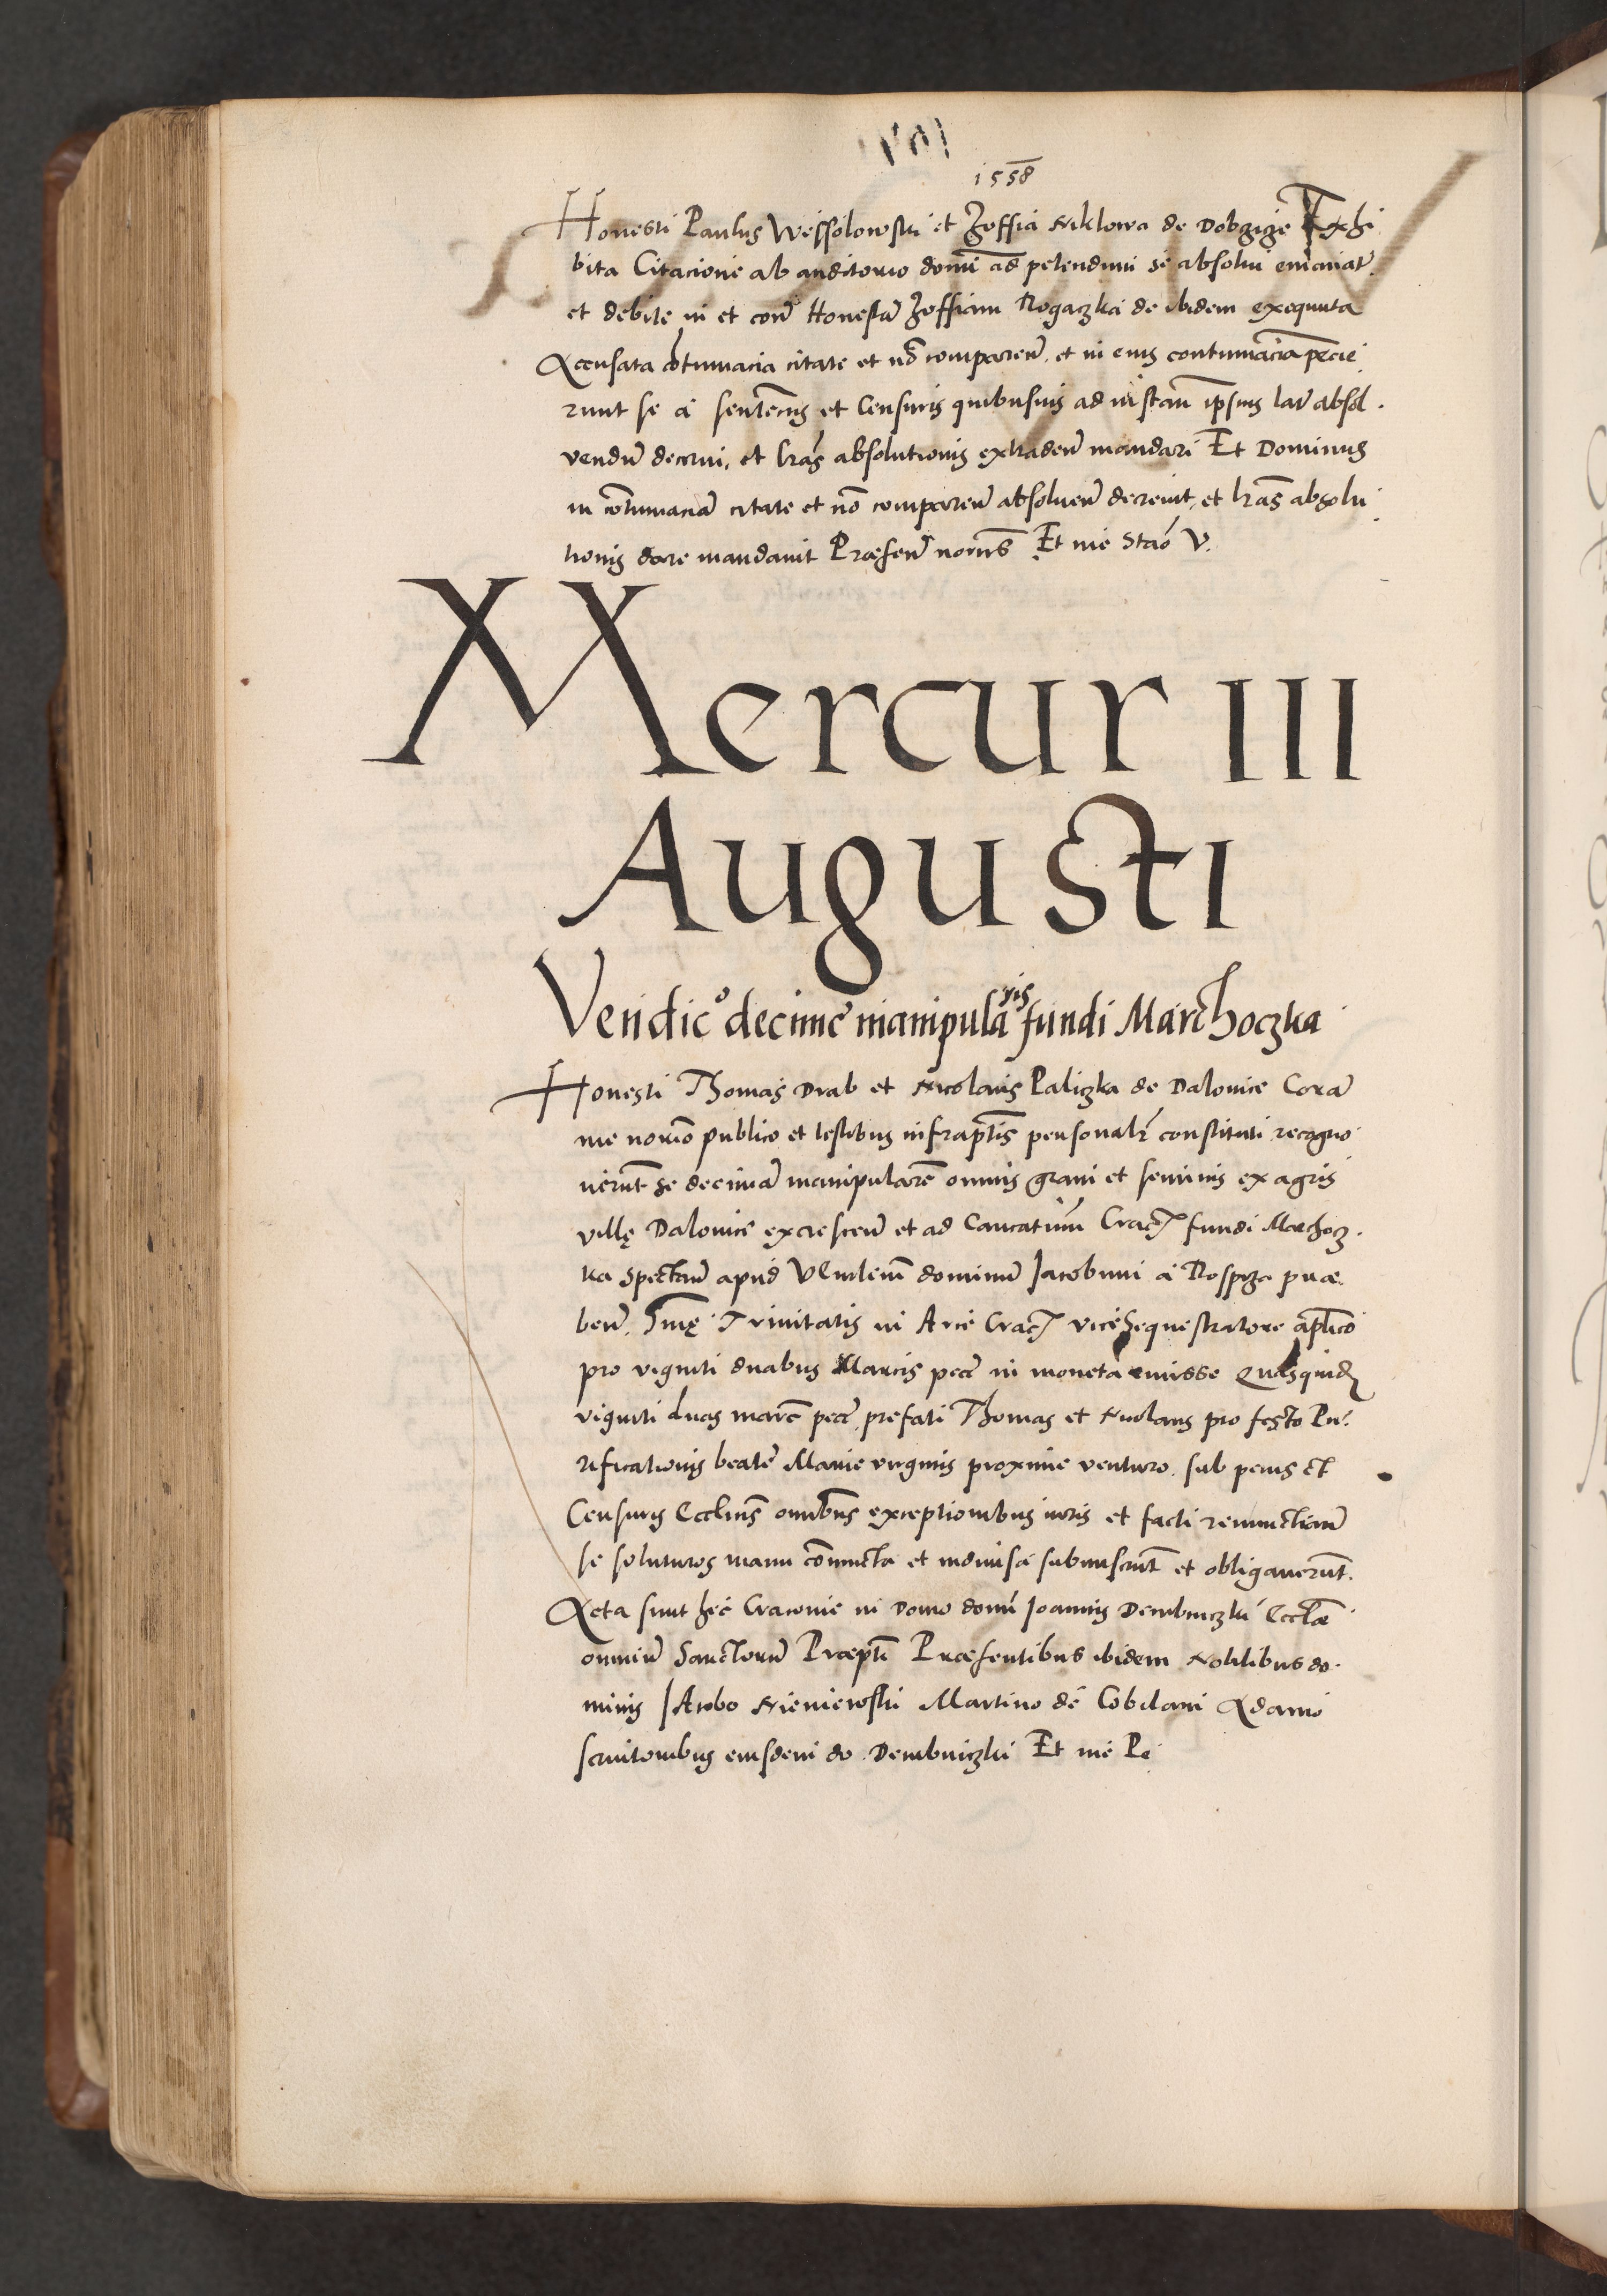 1558
Honesti Paulus Wessolowski et Zoffia Niklowa de Dobzize Exhi
bita Citacione ab auditorio domi ad petendum se absolui emanat
et debite in et con Honesta Zoffiam Rogaczka de ibidem exequuta
Accusata cotumacia citate et no comparen. et in eius contumacia pecie
runt se a sentencys et Censuris quibusuis ad instan ipsius lat absol.
vendu decerni. et lras absolutionis extraden mandari Et Dominus
in contumacia citate et no comparen absoluen decreuit, et lras absolu
tionis dare mandauit Præsen notris Et me Stao V.
Mercur III
Augusti
Vendico decime manipularis fundi Marchoczka
Honesti Thomas Drab et Nicolaus Paliczka de Dalouice Cora
me norio publico et testibus infraptis personalr constituti recogno
uerut se decima manipulare omnis grani et seminis ex agris
villę Dalouice excrescen et ad Canonicatum Crac fundi Marchocz.
ka spectan apud Vendominum Jacobum a Rospza præ
ben. Smę Trinitatis in Arce Crac vice sequestratore aplico
pro viginti duabus Marcis pec in moneta emisse Quasquid
viginti duas marc pec prefati Thomas et Nicolaus pro festo Pu
rificationis beate Marie virginis proxime venturo. sub penis et
Censuris Ecclicis omnibus exceptionibus iuris et facti renunctian
se soluturos manu coniuncta et indiuisa submiserut et obligauerut.
Acta sunt hec Cracouie in Domo domi Joannis Dembinczki Eccliæ
omniu Sanctoru Præpti Præsentibus ibidem Nobilibus do.
minis Jacobo Niemiewski Martino de Cobilani Adamo
seruitoribus eiusdem do Dembniczki Et me Pe